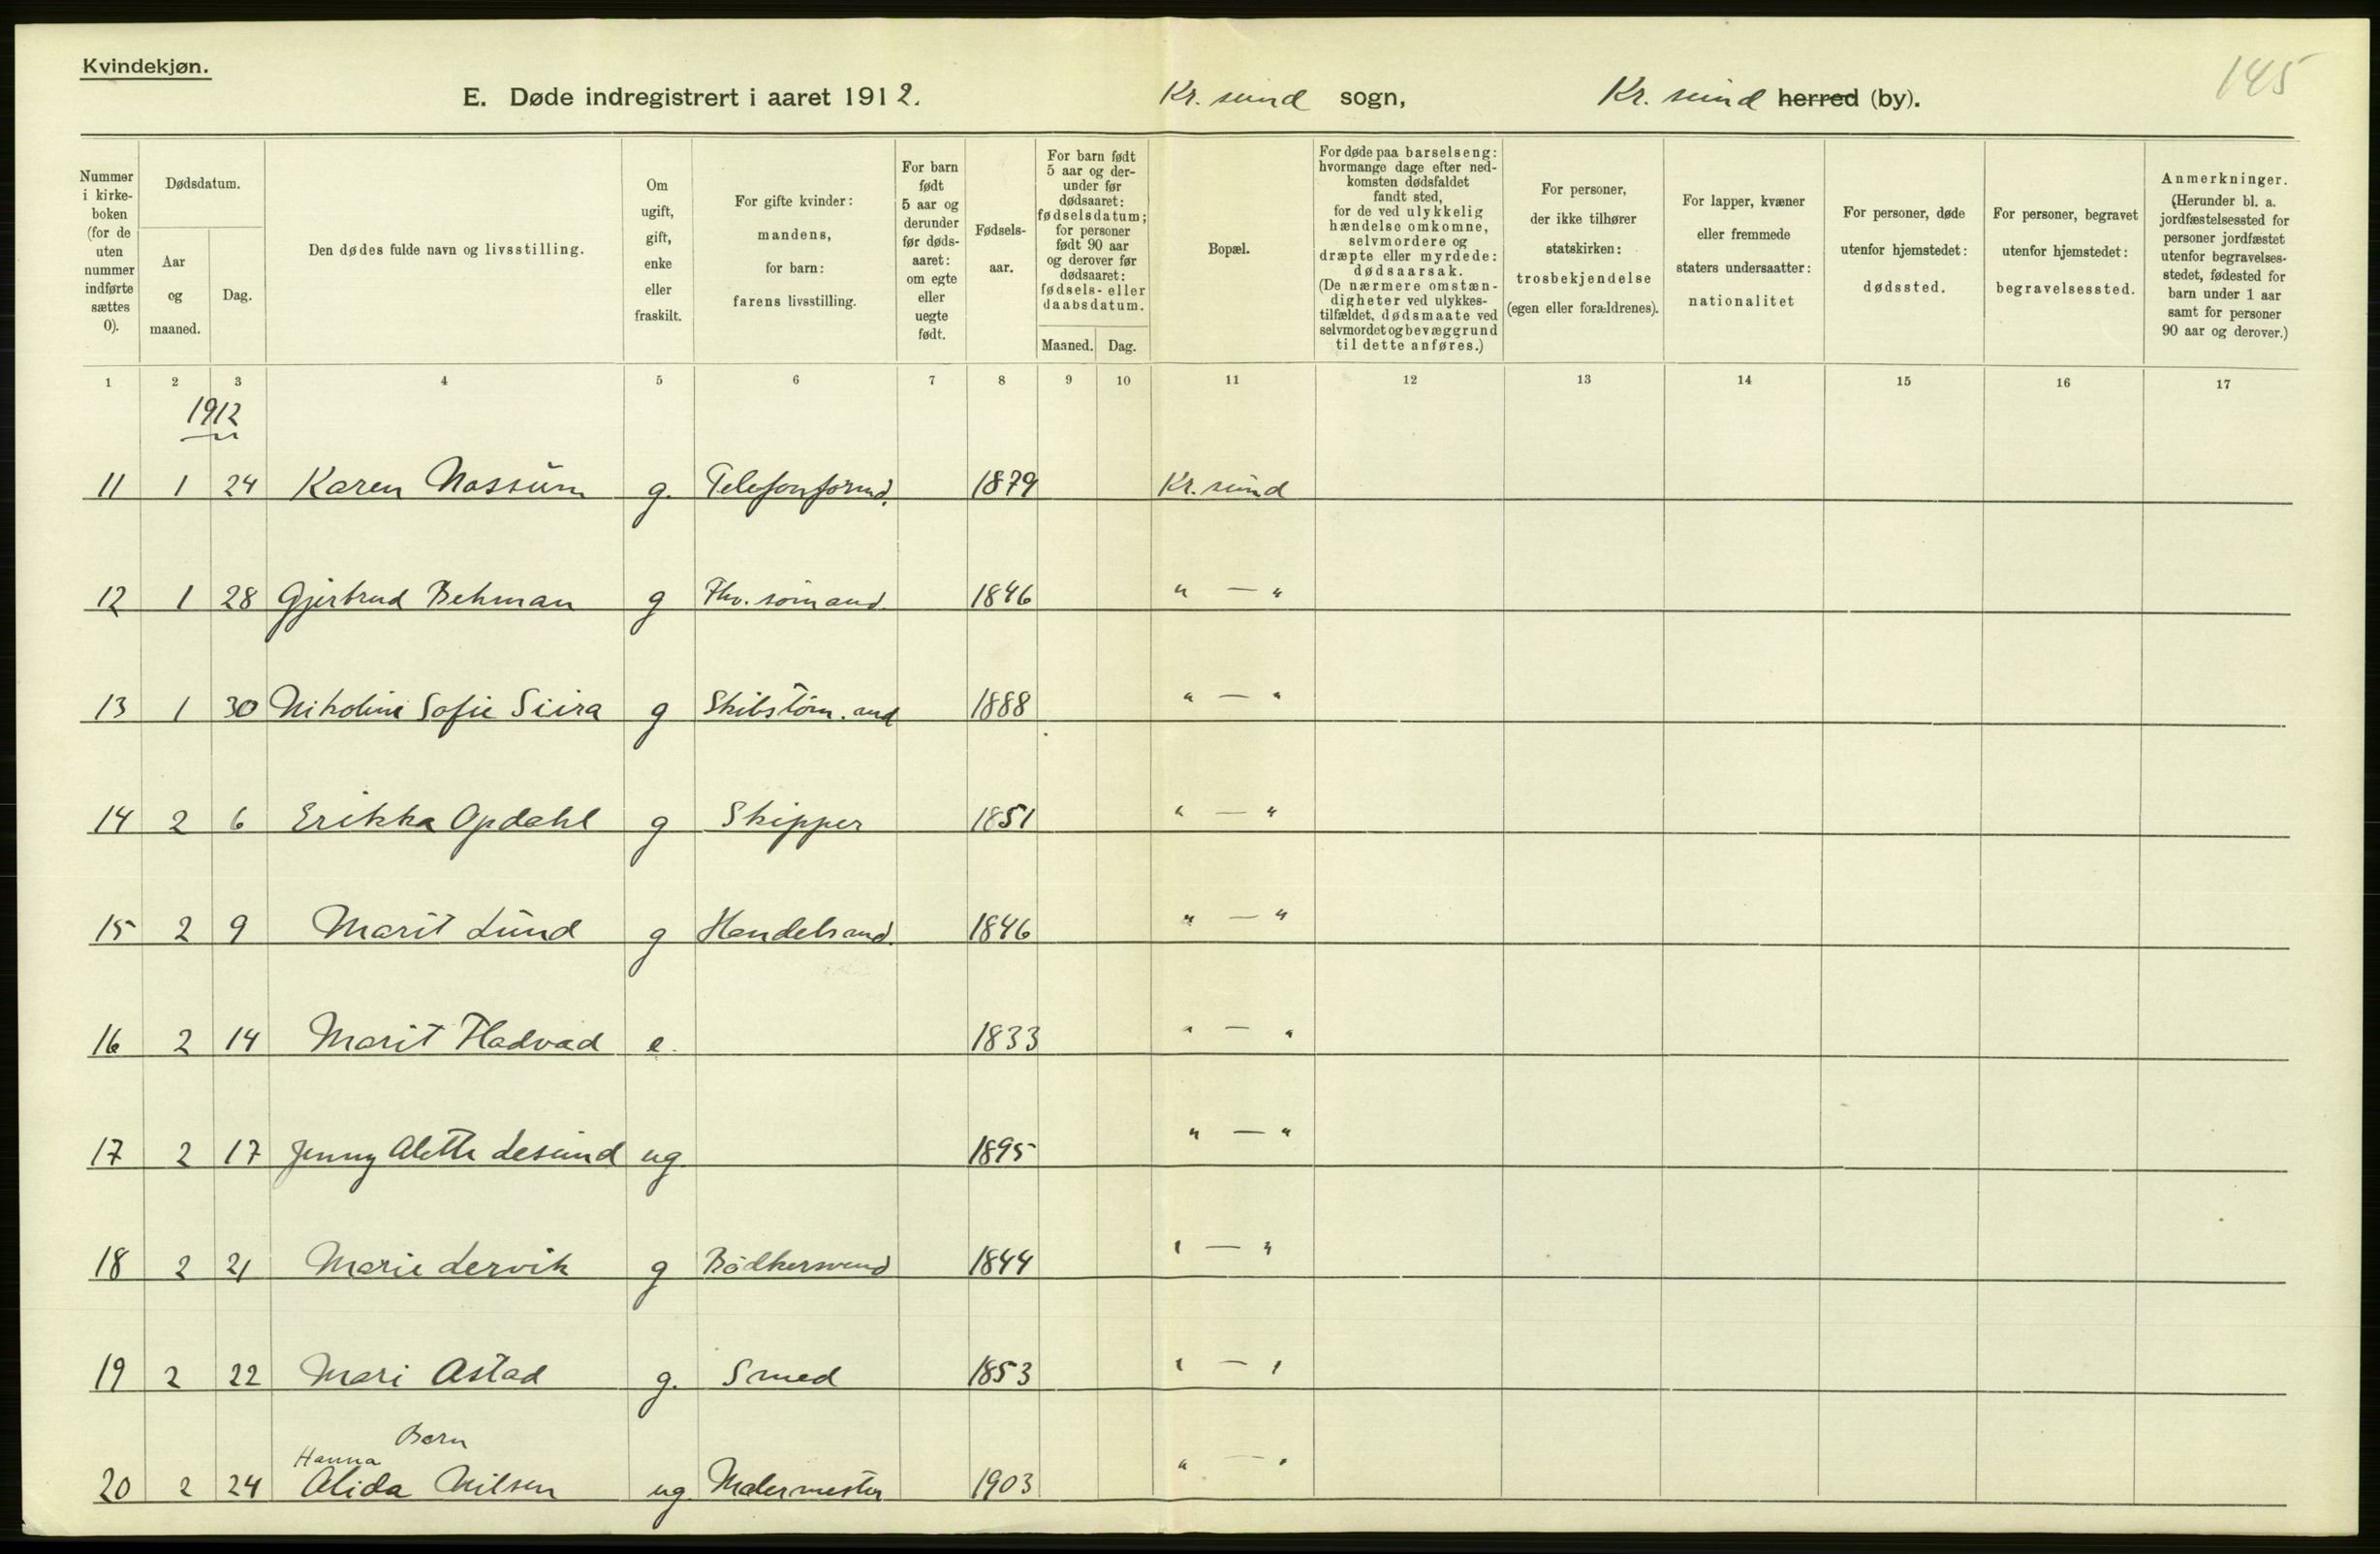 Kvindekjøn.
145
E. Døde indregistrert i aaret 1912. Kr. sund sogn, Kr. sund herred (by).
Nummer i kirkeboken (for de uten nummer indførte sættes 0).
Dødsdatum.
Aar og maaned.
Dag.
Den dødes fulde navn og livsstilling.
Om ugift, gift, enke eller fraskilt.
For gifte kvinder: mandens, for barn: farens livsstilling.
For barn født 5 aar og derunder før dødsaaret: om egte eller uegte født.
Fødselsaar.
For barn født 5 aar og derunder før dødsaaret: fødselsdatum; for personer født 90 aar og derover før dødsaaret: fødsels- eller daabsdatum.
Maaned. Dag.
Bopæl.
For døde paa barselseng: hvormange dage efter nedkomsten dødsfaldet fandt sted, for de ved ulykkelig hændelse omkomne, selvmordere og dræpte eller myrdede: dødsaarsak. (De nærmere omstændigheter ved ulykkestilfældet, dødsmaate ved selvmordet og bevæggrund til dette anføres.)
For personer, der ikke tilhører statskirken: trosbekjendelse (egen eller forældrenes).
For lapper, kvæner eller fremmede staters undersaatter: nationalitet
For personer, døde utenfor hjemstedet: dødssted.
For personer, begravet utenfor hjemstedet: begravelsessted.
Anmerkninger. (Herunder bl. a. jordfæstelsessted for personer jordfæstet utenfor begravelsesstedet, fødested for barn under 1 aar samt for personer 90 aar og derover.)
1 2 3 4 5 6 7 8 9 10 11 12 13 14 15 16 17
1912
11 1 24 Karen Nassum g. Telefonformd. 1879 Kr. sund
12 1 28 Gjertrud Behman g Fhv. sømand 1846 " — "
13 1 30 Nikoline Sofie Siira g Skibstøm. and 1888 " — "
14 2 6 Erikka Opdahl g Skipper 1851 " — "
15 2 9 Marit Lund g Handelsmd. 1846 " — "
16 2 14 Marit Fladvad e. 1833 " — "
17 2 17 Jenny Alette Lesund ug 1895 " — "
18 2 21 Marie Lervik g Bødkersvend 1844 " — "
19 2 22 Mari Astad g. Smed 1853 " — "
Barn
Hanna
20 2 24 Alida Nilsen ug. Malermester 1903 " — "